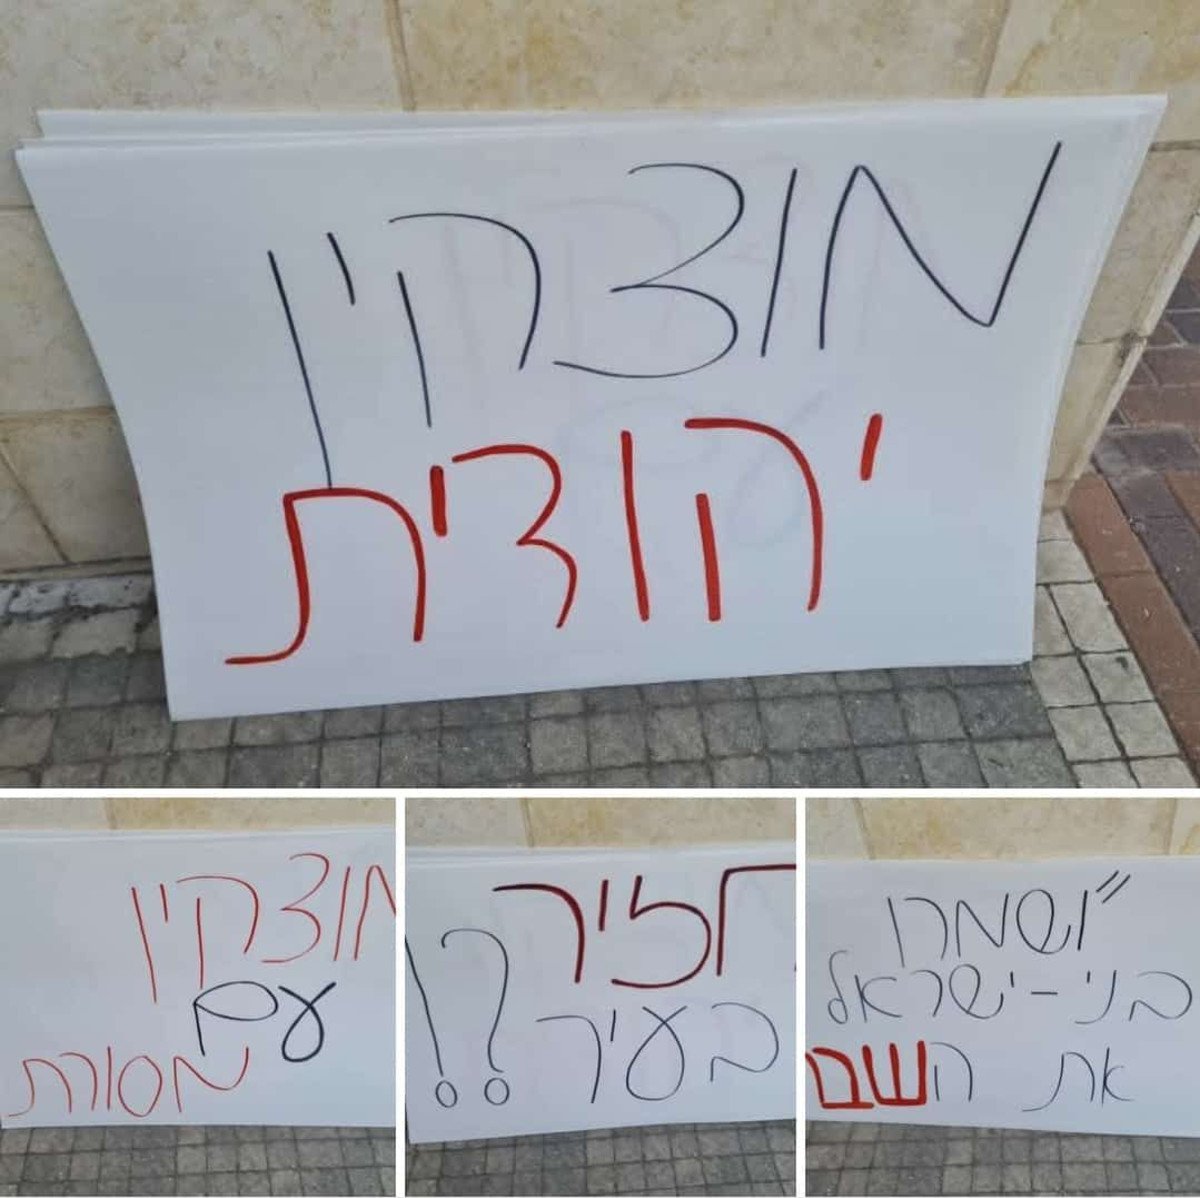 מוצקין
יהודית
מוצקין
עם
מסורת
חזיר
בעיר ?!
"ושמרו
בני-ישראל
את השבת